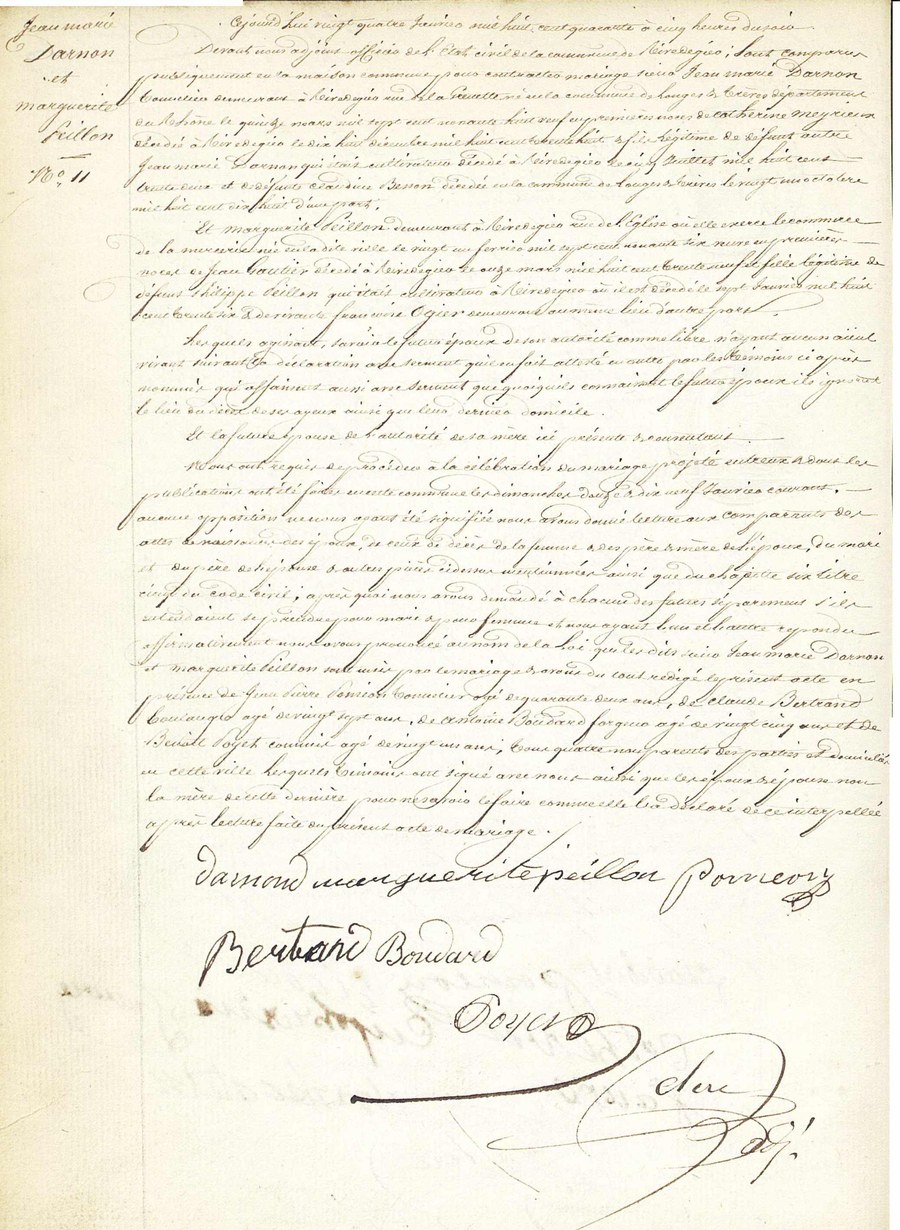 Jean marie
Darnon
et
marguerite
Peillon
No. 11
Cejourd'hui vingt quatre Janvier mil huit cent quarante à cinq heures du soir
Devant nous adjoint officier de l'Etat civil de la commune de Rivedegier, sont comparus
publiquement en la maison commune pour contracter mariage sieur Jean marie Darnon
demeurant à Rivedegier rue de la né en la commune de Longes & Trèves département
du Rhône le quinze mars mil sept cent nonante huit veuf en premières noces de Catherine Meyrieux
décédée à Rivedegier le dix huit décembre mil huit cent trente huit & fils légitime de défunt autre
Jean marie Darnon qui était cultivateur décédé à Rivedegier le cinq Juillet mil huit cent
trente deux et de défunte Claudine Besson décédée en la commune de Longes & Trèves le vingt un octobre
mil huit cent dix huit d'une part.
Et marguerite Peillon demeurant à Rivedegier rue de l'Eglise où elle exerce le commerce
de la mercerie née en la dite ville le vingt un février mil sept cent nonante six veuve en premières
noces de Jean Gautier décédé à Rivedegier le onze mars mil huit cent trente neuf & fille légitime de
défunt Philippe Peillon qui était cultivateur à Rivedegier où il est décédé le sept Janvier mil huit
cent trente six & de vivante françoise Ogier demeurant au même lieu d'autre part.
Lesquels agissant, savoir le futur époux de son autorité comme libre n'ayant aucun aïeul
vivant suivant la déclaration avec serment qu'il en fait attesté en outre par les témoins ci après
nommés qui affirment aussi avec serment que quoiqu'ils connaissent le futur époux ils ignorent
le lieu du décès de ses ayeux ainsi que leur dernier domicile.
Et la future épouse de l'autorité de sa mère ici présente & consentant.
Nous ont requis de procéder à la célébration du mariage projeté entr'eux & dont les
publications ont été faites en cette commune les dimanches douze & dix neuf Janvier courant.
aucune opposition ne nous ayant été signifiée nous avons donné lecture aux comparants des
actes de naissance des époux, de ceux de décès de la femme & des père & mère de l'époux, du mari
et du père de l'épouse & autres pièces ci dessus mentionnées ainsi que du chapitre six titre
cinq du code civil, après quoi nous avons demandé à chacun des futurs séparément s'ils
entendaient se prendre pour mari & pour femme et nous ayant l'un et l'autre répondu
affirmativement nous avons prononcé au nom de la Loi que les dits sieur Jean Marie Darnon
et marguerite Peillon sont unis par le mariage & avons du tout rédigé le présent acte en
présence de Jean Pierre âgé de quarante deux ans, de Claude Bertrand
boulanger âgé de vingt sept ans, de antoine Boudard forgeur âgé de vingt cinq ans et de
Benoit Poyet commis âgé de vingt un ans, tous quatre non parents des parties et domiciliés
en cette ville lesquels témoins ont signé avec nous ainsi que les époux & épouse non
la mère de cette dernière pour ne savoir le faire comme elle l'a déclaré de ce interpellée
après lecture faite du présent acte de mariage.
Darnond marguerite peillon
Bertrand Boudard
Poyet
adj.